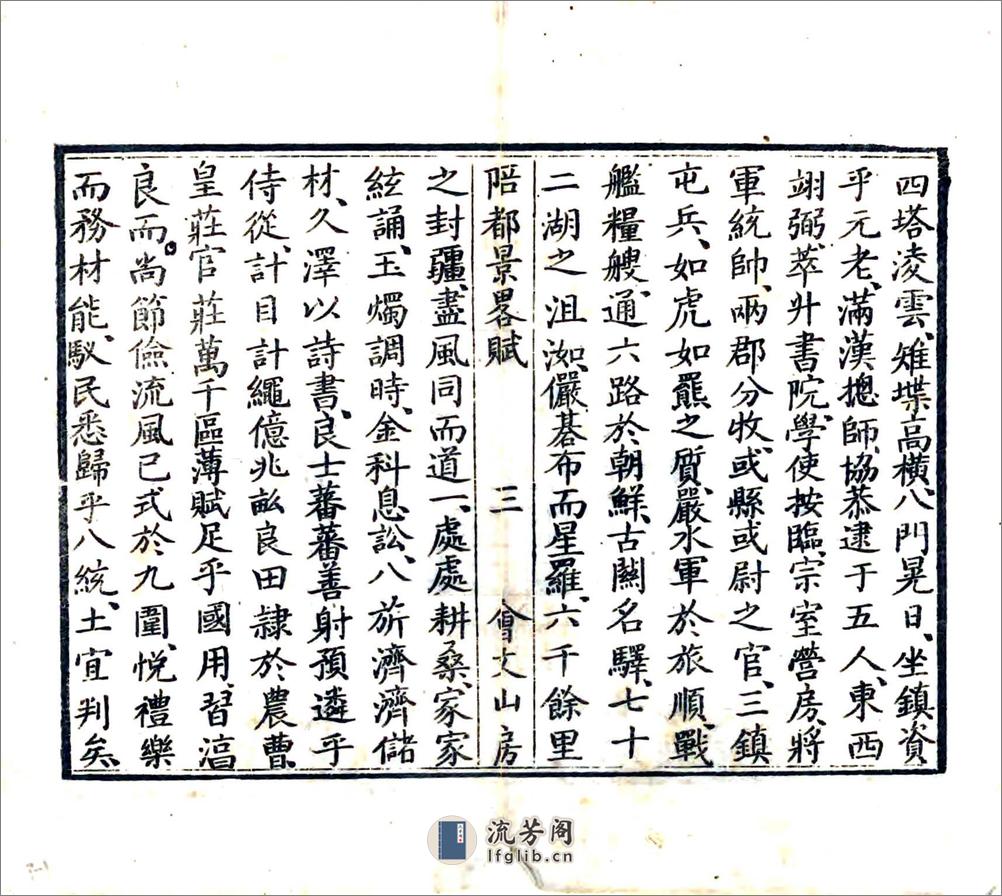 四塔凌雲、雉堞高橫、八門晃日、坐鎮資
乎元老、滿漢摠師、協恭逮于五人、東西
翊弼、萃升書院、學使按臨、宗室營房、將
軍統帥、兩郡分牧、或縣或尉之官、三鎮
屯兵、如虎如羆之質、嚴水軍於旅順、戰
艦糧艘、通六路於朝鮮、古關名驛、七十
二湖之沮洳、儼碁布而星羅、六千餘里
陪都景畧賦 三 會文山房
之封疆、盡風同而道一、處處耕桑、家家
絃誦、玉燭調時、金科息訟、八旂濟濟儲
材、久澤以詩書、良士蕃蕃善射預遴乎
侍從、計目計繩億兆畝良田隷於農曹、
皇莊官莊萬千區薄賦足乎國用、習湻
良而。尚節儉流風已式於九圍、悅禮樂
而務材能、馭民悉歸乎八統、土宜判矣、
流芳阁
lfglib.cn